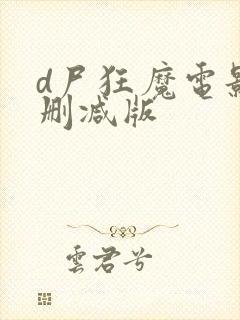 d尸狂魔電影
删减版
雲君兮